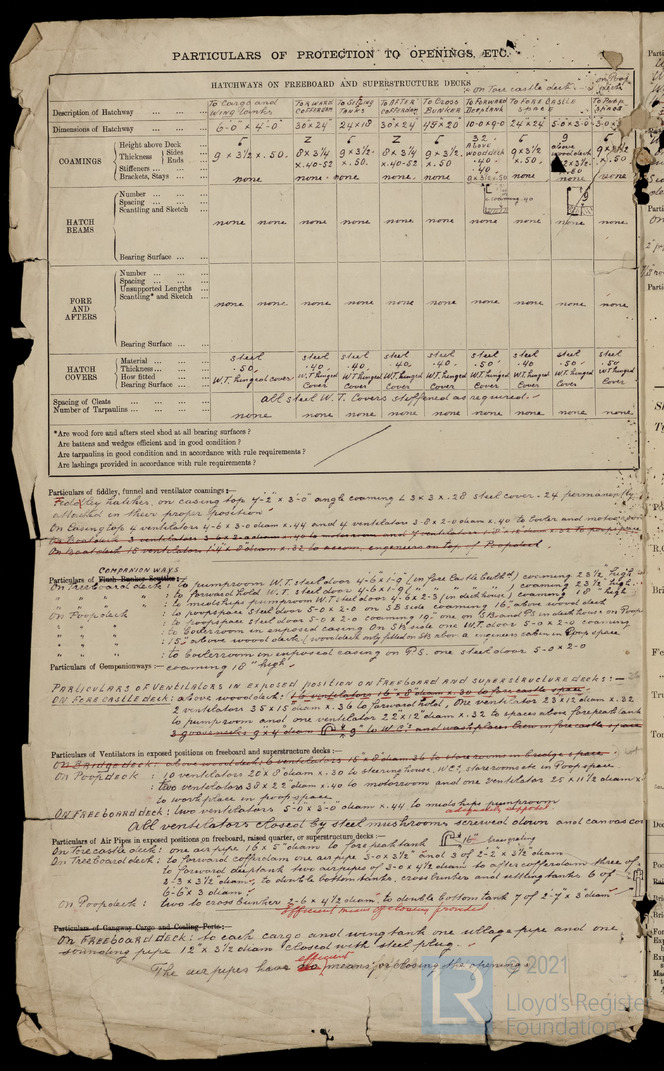 PARTICULARS OF PROTECTION TO OPENINGS, ETC.
HATCHWAYS ON FREEBOARD AND SUPERSTRUCTURE DECKS
on Forecastle deck on Poop deck
Description of Hatchway To Cargo and Wing tanks To Forward Cofferdam To Settling Tanks To After Cofferdam To Cross Bunker To Forward Deeptank To Fore Castle Space To Poop Space
Dimensions of Hatchway 6-0 × 4-0" 30×24" 24×18 30×24" 48×20" 10-0×9-0 24×24" 5-0×3-0
COAMINGS
Height above Deck 32 above wooddeck 9 above wooddeck
Thickness Sides 9 × 3½ × .50. 8×3¼ 9×3½ 8×3¼ 9×3½
Ends x.40-52 x.50. x.40-52 x.50 .40 x.50. x.50
Stiffeners .40
Brackets, Stays none none none none none 9×3½×.50 none none none
HATCH BEAMS
Number
Spacing
Scantling and Sketch coaming .40
none none none none none none none none none none
Bearing Surface
FORE AND AFTERS
Number
Spacing
Unsupported Lengths
Scantling* and Sketch
none none none none none none none none none none
Bearing Surface
HATCH COVERS
Material steel steel steel steel steel steel steel steel steel
Thickness .50 .40 .40 .40 .40 .50 .40 .50 .50
How fitted W.T. hinged cover W.T hinged W.T hinged W.T hinged W.T hinged W.T hinged W.T hinged W.T hinged W.T hinged
Bearing Surface Cover Cover Cover Cover Cover Cover Cover Cover
Spacing of Cleats all steel W.T. Covers stiffened as required.
Number of Tarpaulins none none none none none none none none none
*Are wood fore and afters steel shod at all bearing surfaces?
Are battens and wedges efficient and in good condition?
Are tarpaulins in good condition and in accordance with rule requirements?
Are lashings provided in accordance with rule requirements?
Particulars of fiddley, funnel and ventilator coamings:—
Fiddley hatches on casing top 4-2" × 3-0" angle coaming L 3×3×.28 steel cover .24 permanently
attached in their proper position
On Casing top 4 ventilators 4-6×3-0 diam × .44 and 4 ventilators 3-8×2-0 diam × .40 to boiler and motorroom
On boat deck 15 ventilators 14×8" diam × .32 to accom. engineers on top of Poopdeck.
COMPANIONWAYS
Particulars of Flush Bunker Scuttles:—
On Freeboard deck: to pumproom W.T. steel door 4-6"×1-9" (in fore Castle bulkhd) coaming 23½" high
" " " : to forward hold W.T. steel door 4-6×1-9" ( " " " ) coaming 23½" high
" " " : to midships pumproom W.T. steel door 4-6×2-3 (in deckhouse) coaming 18" high
On Poopdeck : to poopspace steel door 5-0×2-0 on SB side coaming 16" above wood deck
" " : to poopspace steel door 5-0×2-0 coaming 19" one on SB and PS in deckhouse on Poop
" " : to boilerroom in exposed casing on SB side one W.T. door 5-0×2-0 coaming
" " : 15" above wood deck (wood deck only fitted on SB above a engineers cabin in Poop space
" " : to boilerroom in exposed casing on P.S. one steel door 5-0×2-0
Particulars of Companionways:— coaming 18" high
PARTICULARS OF VENTILATORS IN EXPOSED POSITION ON FREEBOARD AND SUPERSTRUCTURE DECKS:—
ON FORECASTLE DECK: above wood deck: 16 ventilators 16"×8" diam × .30 to fore castle space
2 ventilators 35×15" diam × .36 to forward hold, One ventilator 23×12" diam × .32
to pumproom and one ventilator 22×12" diam × .32 to spaces above forepeaktank
3 goosenecks 9×4" diam 9" to W.C.s and washplaces crew in fore castle space
Particulars of Ventilators in exposed positions on freeboard and superstructure decks:—
On Bridge deck: above wood deck: 6 ventilators 15"×8" diam .36 to storerooms in bridge space
On Poopdeck : 10 ventilators 20×8" diam × .30 to steeringhouse, W.C.s, storerooms etc in Poop space
: two ventilators 38×22" diam × .40 to motorroom and one ventilator 25×11½ diam ×
to workplace in poop space
ON FREEBOARD DECK: two ventilators 5-0"×3-0" diam × .44 to midships pumproom
All ventilators closed by steel mushrooms screwed down and canvas cov
Particulars of Air Pipes in exposed positions on freeboard, raised quarter, or superstructure decks:—
On Forecastle deck: one air pipe 16×5" diam to forepeak tank 16"
On Freeboard deck: to forward cofferdam one air pipe 3-0×3½" and 3 of 2-2"×3½" diam
to forward deeptank two airpipes of 3-0×4½ diam to after cofferdam three of
2-3×3½" diam, to double bottom tanks, cross bunker and settling tanks 6 of
6-6×3 diam
On Poopdeck: two to cross bunker 2-6×4½ diam, to double bottom tank 7 of 2-7"×3" diam
Efficient means of closing provided
Particulars of Gangway Cargo and Coaling Ports:—
ON FREEBOARD DECK: to each cargo and wing tank one ullage pipe and one
sounding pipe 12"×3½ diam closed with steel plug.
The air pipes have efficient means for closing the openings
© 2021
LR
Lloyd's Registe
Foundation